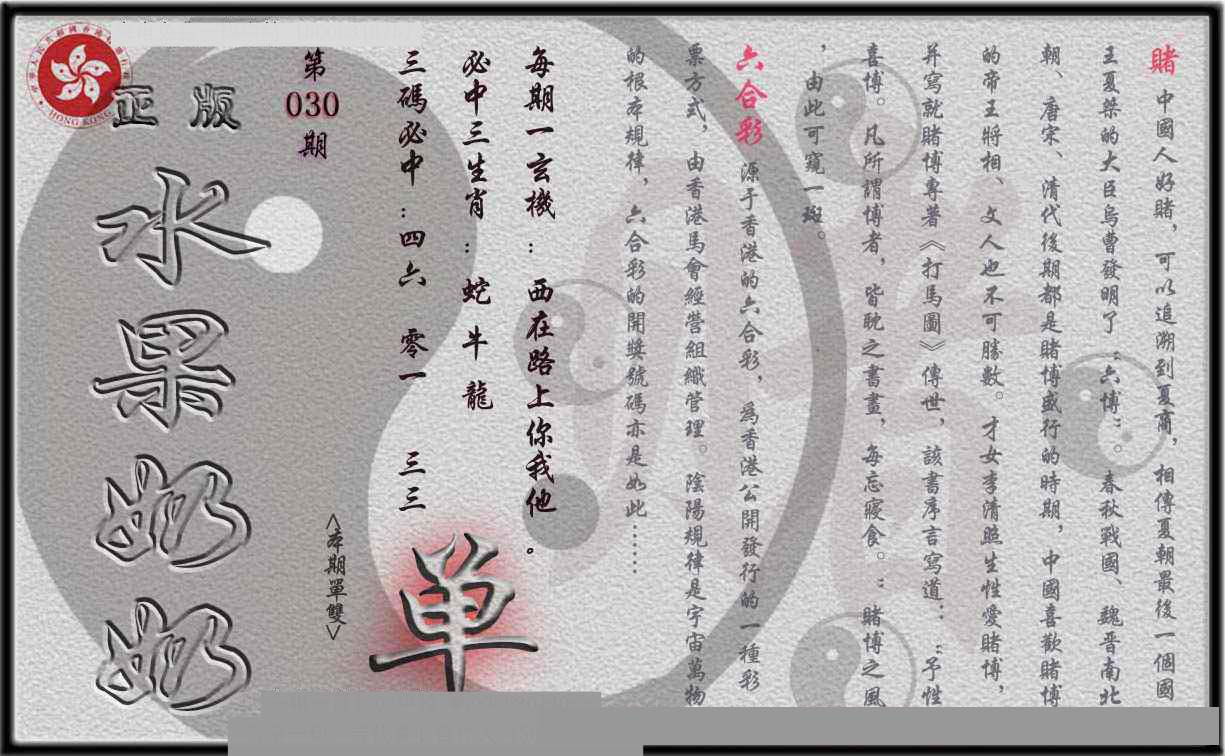 賭 中國人好賭，可以追溯到夏商，相傳夏朝最後一個國
王夏桀的大臣烏曹發明了“六博”。春秋戰國、魏晋南北
朝、唐宋、清代後期都是賭博盛行的時期，中國喜歡賭博
的帝王將相、文人也不可勝數。才女李清照生性愛賭博，
并寫就賭博專著《打馬圖》傳世，該書序言寫道：“予性
喜博。凡所謂博者，皆耽之書畫，每忘寢食。”賭博之風
，由此可窺一斑。
六合彩 源于香港的六合彩，爲香港公開發行的一種彩
票方式，由香港馬會經營組織管理。陰陽規律是宇宙萬物
的根本規律，六合彩的開獎號碼亦是如此……
每期一玄機：西在路上你我他。
必中三生肖：蛇牛龍
三碼必中：四六 零一 三三
單
<本期單雙>
第030期
正版
水果奶奶
HONG KONG